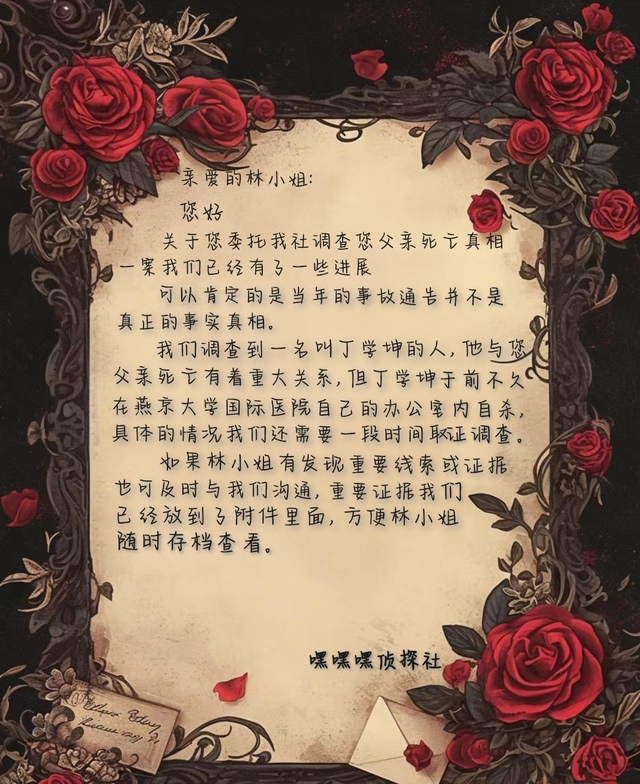 亲爱的林小姐:
您好
关于您委托我社调查您父亲死亡真相
一案我们已经有了一些进展
可以肯定的是当年的事故通告并不是
真正的事实真相。
我们调查到一名叫丁学坤的人,他与您
父亲死亡有着重大关系,但丁学坤于前不久
在燕京大学国际医院自己的办公室内自杀,
具体的情况我们还需要一段时间取证调查。
如果林小姐有发现重要线索或证据
也可及时与我们沟通,重要证据我们
已经放到了附件里面,方便林小姐
随时存档查看。
嘿嘿嘿侦探社